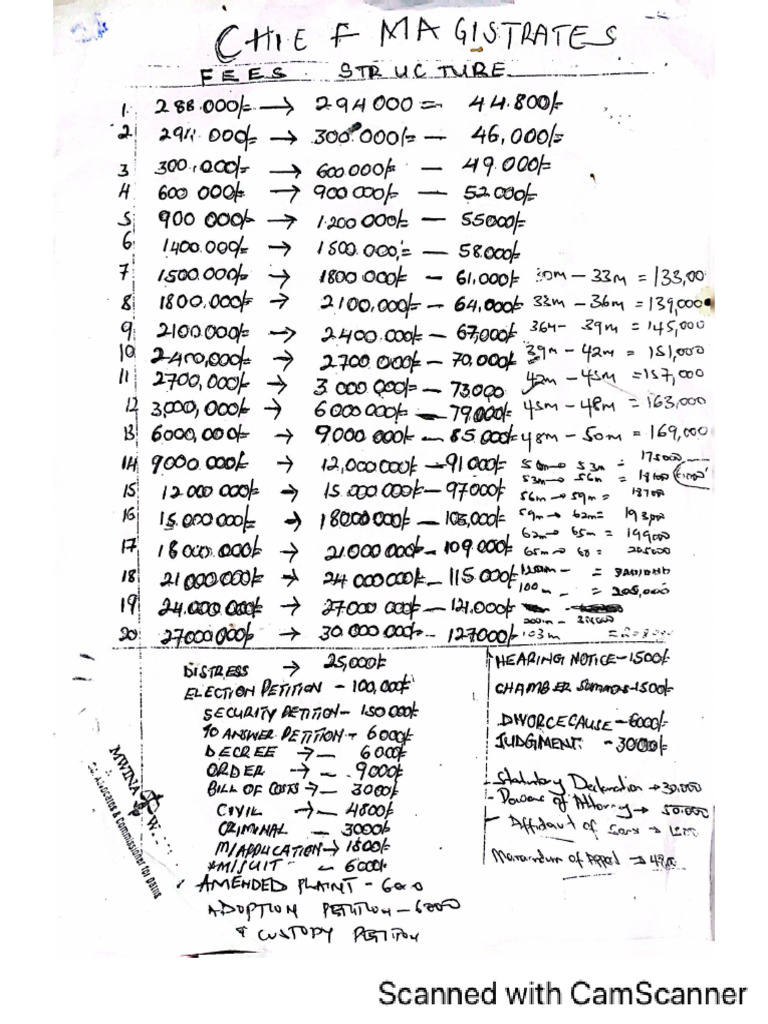 CHIEF MAGISTRATES
FEES STRUCTURE
1. 288.000/= → 294000 = 44.800/=
2 294.000/= → 300.000/= — 46,000/=
3 300.000/= → 600000/= — 49.000/=
4 600 000/= → 900 000/= — 52.000/=
5 900 000/= → 1.200 000/= — 55000/=
6 1400.000/= → 1500.000/= — 58.000/=
7 1500.000/= → 1800 000/= — 61,000/=
8 1800.000/= → 2100,000/= — 64,000/=
9 2100000/= → 2400.000/= — 67,000/=
10 2400,000/= → 2700.000/= — 70.000/=
11 2700,000/= → 3.000 000/= — 73000
12 3,000,000/= → 6000000/= — 79,000/=
13 6000,000/= → 9000 000/= — 85.000/=
14 9000 000/= → 12,000000/= — 91000/=
15 12 000 000/= → 15.000000/= — 97000/=
16 15.000000/= → 18000000/= — 103,000/=
17 18000.000/= → 21000000/= — 109.000/=
18 21000000/= → 24 000000/= — 115.000/=
19 24.000 000/= → 27000 000/= — 121,000/=
20 27000000/= → 30.000 000/= — 127000/=
30m — 33m = 133,00
33m — 36m = 139,000
364 — 39m = 145,000
39m — 42m = 151,000
42m — 45m = 157,000
45m — 48m = 163,000
48m — 50m = 169,000
50m → 53m = 175000
53m → 56m =
56m → 59m = 18700
59m → 62m = 193000
62m → 65m = 199000
65m → 68 = 205000
120m — =
100m — = 205,000
200m —
103m =
DISTRESS → 25,000/=
ELECTION PETITION — 100,000/=
SECURITY PETITION — 150000/=
TO ANSWER PETITION → 6000/=
DECREE → — 6000/=
ORDER → — 9000/=
BILL OF COSTS → — 3000/=
CIVIL → — 4800/=
CRIMINAL — 3000/=
M/APPLICATION → 1500/=
*M/SUIT — 6000/=
AMENDED PLAINT — 6000
ADOPTION PETITION — 6000
& CUSTODY PETITION
HEARING NOTICE — 1500/=
CHAMBER Summons — 1500/=
DIVORCE CAUSE — 6000/=
JUDGMENT: — 3000/=
Statutory Declaration → 30.000
Powers of Attorney → 50.000
Affidavit of →
Memorandum of Appeal →
MWINA W
Advocates & Commissioner for Oaths
Scanned with CamScanner